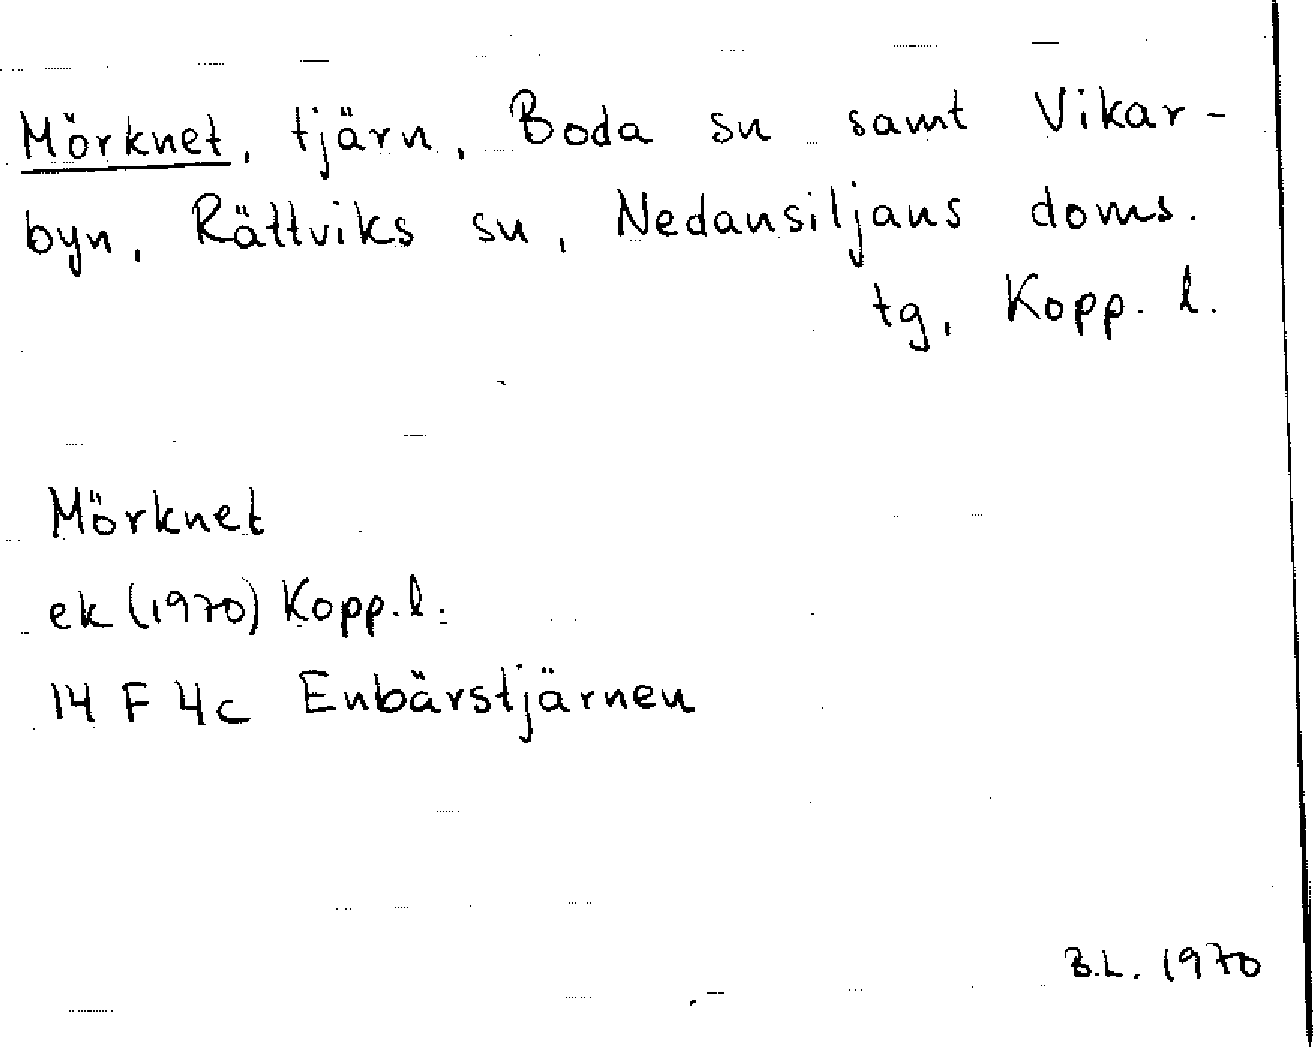 Mörknet, tjärn, Boda sn samt Vikar-
byn, Rättviks sn, Nedansiljans doms.
tg, Kopp. l.
Mörknet
ek (1970) Kopp. l.
14 F 4c Enbärstjärnen
B.L. 1970